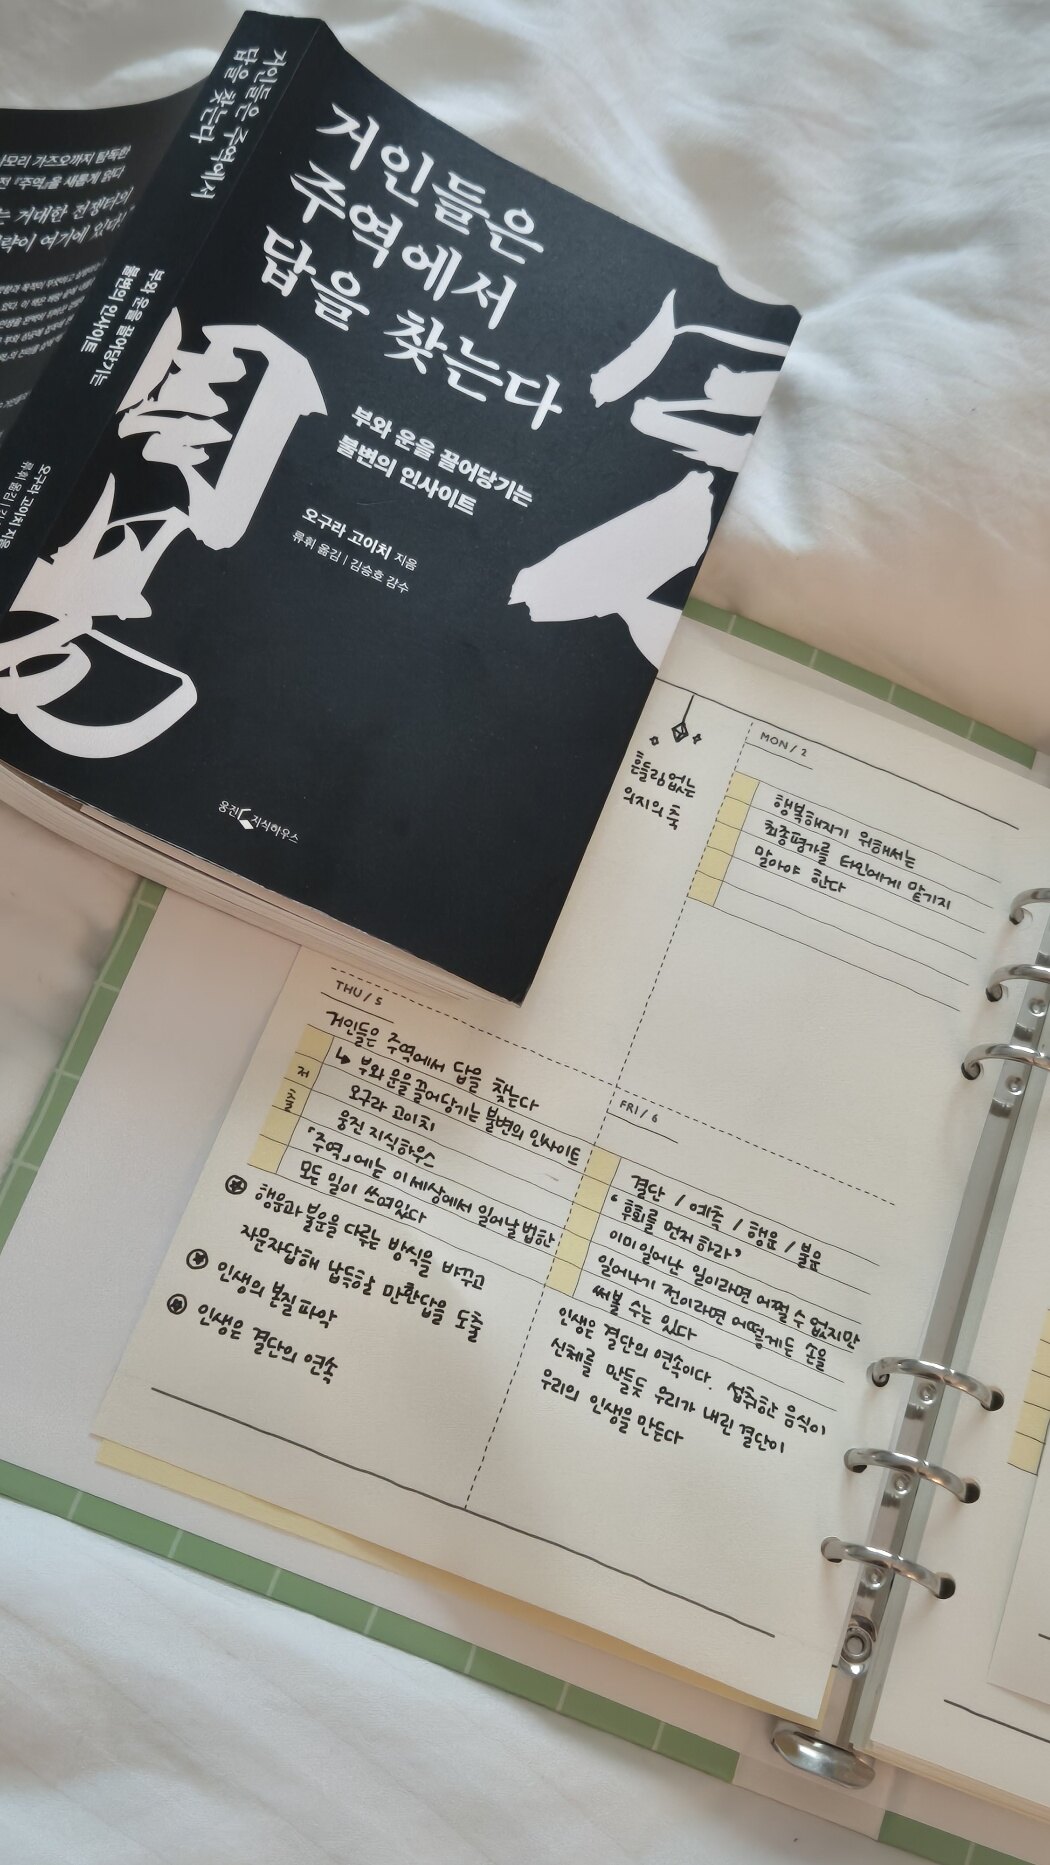 거인들은
주역에서
답을 찾는다
부와 운을 끌어당기는
불변의 인사이트
오구라 고이치 지음
류휘 옮김 | 김승호 감수
웅진 지식하우스
거인들은 주역에서
답을 찾는다
부와 운을 끌어당기는
불변의 인사이트
오구라 고이치 지음
모리 가즈오까지 탐독한
전 『주역』을 새롭게 읽다
는 거대한 전쟁터의
략이 여기에 있다!"
周易
흔들림없는
의지의 축
MON / 2
행복해지기 위해서는
최종평가를 타인에게 맡기지
말아야 한다
THU / 5
거인들은 주역에서 답을 찾는다
↳ 부와 운을 끌어당기는 불변의 인사이트
저 오구라 고이치
웅진 지식하우스
「주역」에는 이 세상에서 일어날 법한
모든 일이 쓰여있다
행운과 불운을 다루는 방식을 바꾸고
자문자답해 납득할 만한답을 도출
인생의 본질 파악
인생은 결단의 연속
FRI / 6
결단 / 예측 / 행운 / 불운
'후회를 먼저 하라'
이미 일어난 일이라면 어쩔 수 없지만
일어나기 전이라면 어떻게든 손을
써볼 수는 있다
인생은 결단의 연속이다. 섭취한 음식이
신체를 만들듯 우리가 내린 결단이
우리의 인생을 만든다